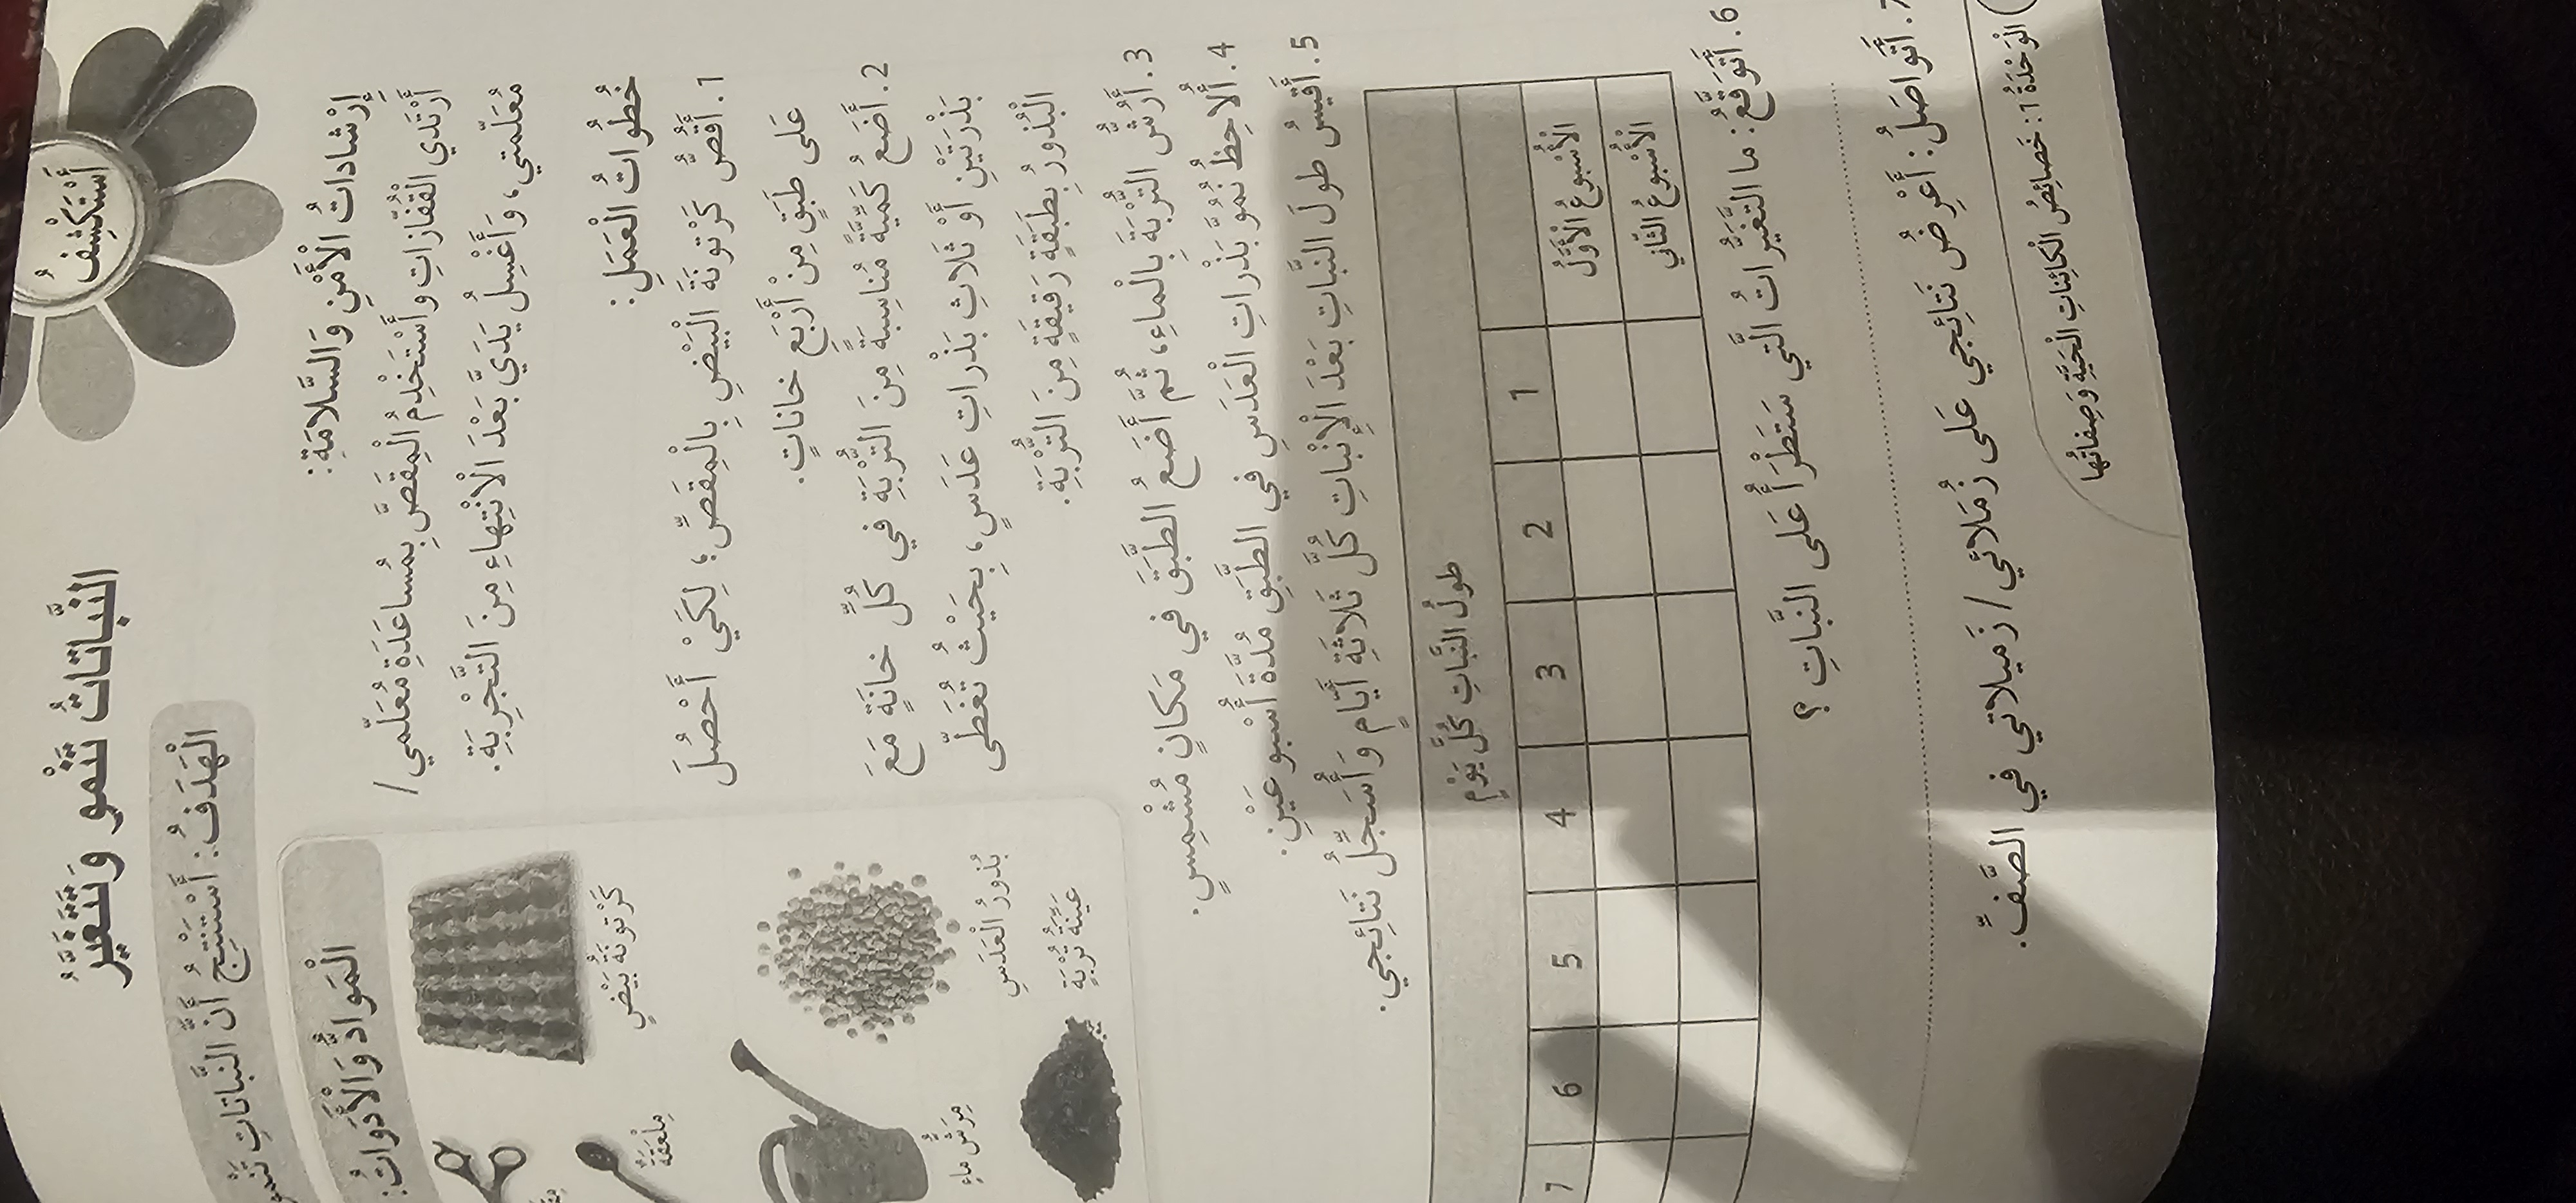 أَسْتَكْشِفُ
النَّباتاتُ تَنْمو وَتَتَغَيَّرُ
الْهَدَفُ: أَسْتَنْتِجُ أَنَّ النَّباتاتِ
الْمَوادُّ وَالْأَدَواتُ:
كَرْتونَةُ بَيْضٍ
مِلْعَقَةٌ
بُذورُ الْعَدَسِ
مِرَشُّ ماءٍ
عَيِّنَةُ تُرْبَةٍ
إِرْشاداتُ الْأَمْنِ وَالسَّلامَةِ:
أَرْتَدي الْقُفّازاتِ وَأَسْتَخْدِمُ الْمِقَصَّ بِمُساعَدَةِ مُعَلِّمي/
مُعَلِّمَتي، وَأَغْسِلُ يَدَيَّ بَعْدَ الْانْتِهاءِ مِنَ التَّجْرِبَةِ.
خُطُواتُ الْعَمَلِ:
1. أَقُصُّ كَرْتونَةَ الْبَيْضِ بِالْمِقَصِّ؛ لِكَيْ أَحْصُلَ
عَلى طَبَقٍ مِنْ أَرْبَعِ خاناتٍ.
2. أَضَعُ كَمِّيَّةً مُناسِبَةً مِنَ التُّرْبَةِ في كُلِّ خانَةٍ مَعَ
بَذْرَتَيْنِ أَوْ ثَلاثِ بَذْراتِ عَدَسٍ، بِحَيْثُ تُغَطّى
الْبُذورُ بِطَبَقَةٍ رَقيقَةٍ مِنَ التُّرْبَةِ.
3. أَرُشُّ التُّرْبَةَ بِالْماءِ، ثُمَّ أَضَعُ الطَّبَقَ في مَكانٍ مُشْمِسٍ.
4. أُلاحِظُ نُمُوَّ بَذْراتِ الْعَدَسِ في الطَّبَقِ مُدَّةَ أُسْبوعَيْنِ.
5. أَقيسُ طولَ النَّباتِ بَعْدَ الْإِنْباتِ كُلَّ ثَلاثَةِ أَيّامٍ وَأُسَجِّلُ نَتائِجي.
طولُ النَّباتِ كُلَّ يَوْمٍ
1 2 3 4 5 6 7
الْأُسْبوعُ الْأَوَّلُ
الْأُسْبوعُ الثّاني
6. أَتَوَقَّعُ: ما التَّغَيُّراتُ الَّتي سَتَطْرَأُ عَلى النَّباتِ؟
7. أَتَواصَلُ: أَعْرِضُ نَتائِجي عَلى زُمَلائي/ زَميلاتي في الصَّفِّ.
الْوَحْدَةُ 1: خَصائِصُ الْكائِناتِ الْحَيَّةِ وَصِفاتُها